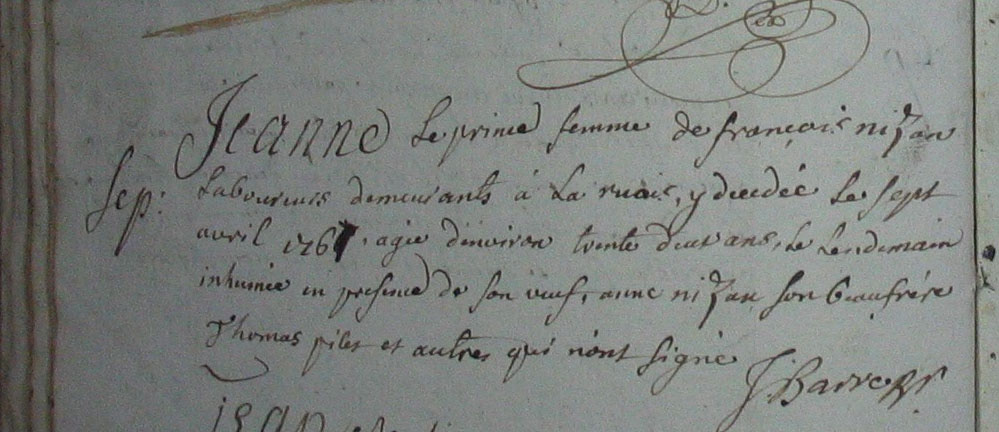 Jeanne Le prince femme de françois nizan
Sep: Laboureurs demeurants à La ruais, y decedée Le sept
avril 1767, agie d'environ trente deux ans, Le Lendemain
inhumée en presence de son veuf, anne nizan son beaufrére
Thomas piles et autres qui n'ont signe
J: Barre
Jean